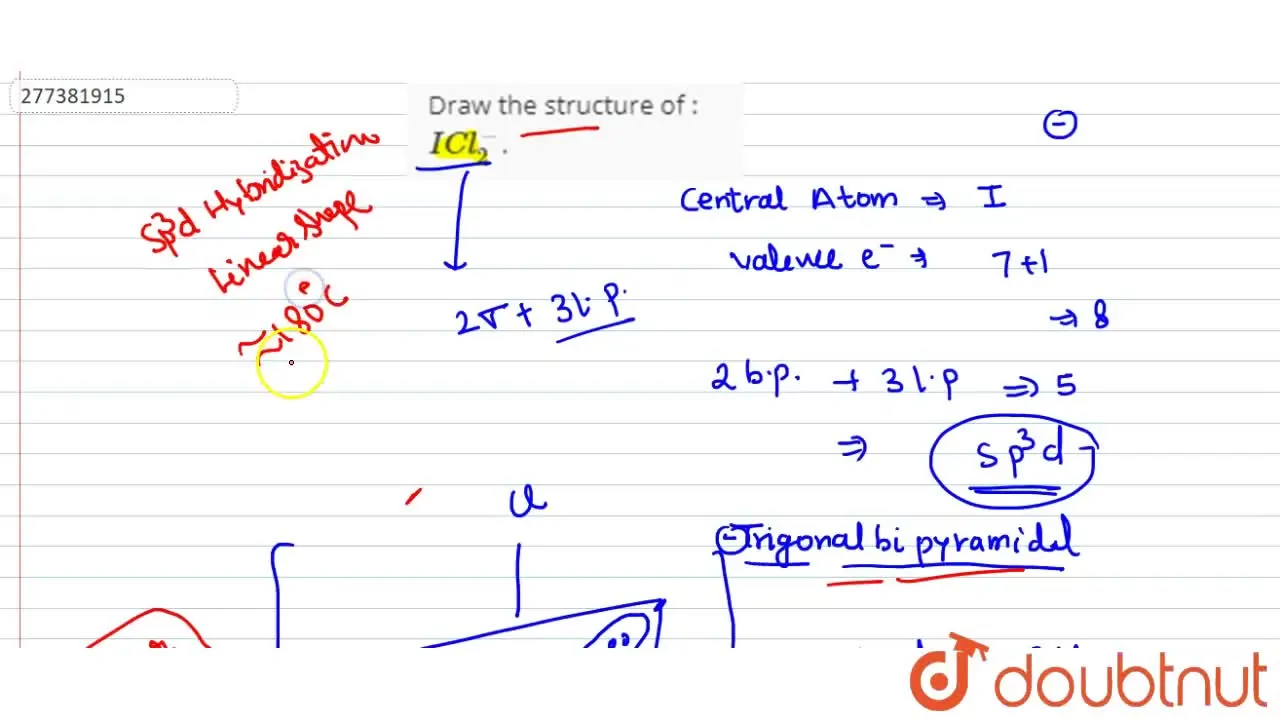 277381915
Draw the structure of :
ICl₂⁻ .
⊖
Sp³d Hybridization
Linear Shape
≈180°C
Central Atom ⇒ I
Valence e⁻ ⇒ 7+1
⇒ 8
2σ + 3l.p.
2 b.p. + 3 l.p ⇒ 5
⇒ sp³d
Cl
⊖
Trigonal bi pyramidal
doubtnut